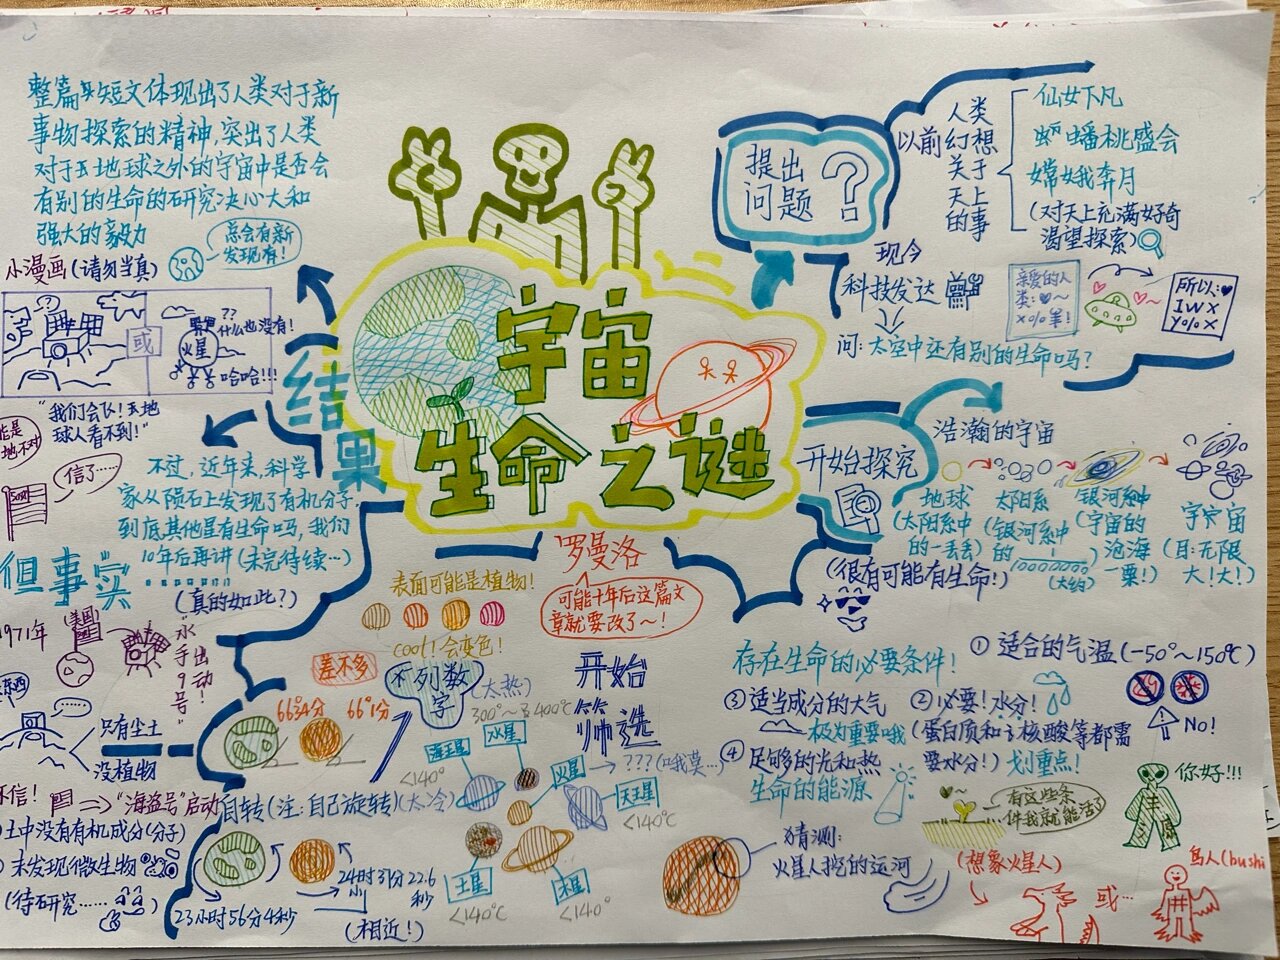 整篇短文体现出了人类对于新
事物探索的精神,突出了人类
对于地球之外的宇宙中是否会
有别的生命的研究决心大和
强大的毅力
总会有新
发现有!
小漫画(请勿当真)
或
??
什么也没有!
火星
哈哈!!!
"我们会飞!地
球人看不到!"
信了……
结果
不过,近年来,科学
家从陨石上发现了有机分子.
到底其他星有生命吗,我们
10年后再讲(未完待续…)
(真的如此?)
但事实
1971年
美国
"水手9号"出动!
只有尘土
没植物
"海盗号"启动
土中没有有机成分(分子)
未发现微生物
(待研究……
宇宙
生命之谜
提出
问题
?
以前
人类
幻想
关于
天上
的事
仙女下凡
蟠桃盛会
嫦娥奔月
(对天上充满好奇
渴望探索)
现今
科技发达
问:太空中还有别的生命吗?
亲爱的人
类:
x%笨!
所以:
IWX
Y%X
开始探究
浩瀚的宇宙
地球
(太阳系中
的一丢丢)
太阳系
(银河系中
的
(大约)
银河系中
(宇宙的
沧海
一粟!)
宇宙
(且:无限
大!大!)
(很有可能有生命!)
罗曼洛
可能十年后这篇文
章就要改了~!
表面可能是植物!
cool!会变色!
差不多
66°34分
66°1分
不列数
字
(太热)
300°~400℃
开始
筛选
海王星
<140°
水星
火星
???(哦莫…)
天王星
<140℃
(太冷)
土星
<140℃
木星
<140°
自转(注:自己旋转)
24时31分22.6
秒
23小时56分4秒
(相近!)
存在生命的必要条件!
① 适合的气温(-50°~150℃)
No!
② 必要!水分!
(蛋白质和核酸等都需
要水分!)划重点!
③ 适当成分的大气
极为重要哦
④ 足够的光和热
生命的能源
有这些条
件我就能活了
你好!!!
猜测:
火星人挖的运河
(想象火星人)
或…
鸟人(bushi